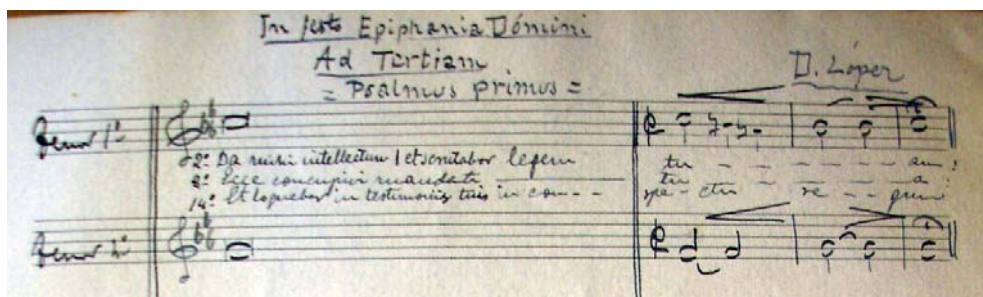 In festo Epiphania Dómini
Ad Tertiam
= Psalmus primus =
D. López
Tenor 1º
2º Da mihi intellectum / et scrutabor legem tu - - - - - - - am:
8º Ecce concupivi mandata tu - - - - - - - a:
14º Et loquebar in testimoniis tuis in con - - spe - ctu - re - - gum
Tenor 2º